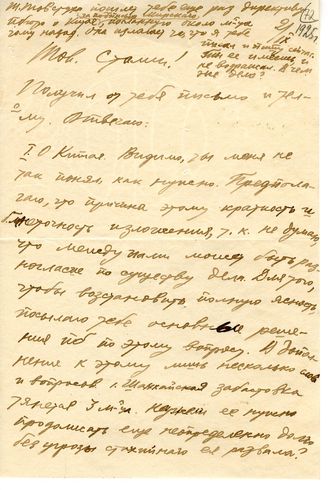 посылаю тебе еще раз директиву
п/бюро о Китае, посланную около м-ца
тому назад.
2/
1925 г.
не возражал. В чем
же дело?
Тов. Сталин!
Получил от тебя письмо и теле-
му. Отвечаю:
I. О Китае. Видимо, ты меня не
так понял, как нужно. Предпола-
гаю, что причина этому краткость и
неточность изложения, т. к. не думаю,
что между нами может быть раз-
ногласие по существу дела. Для того,
чтобы восстановить полную ясность
посылаю тебе основные реше-
ния пб по этому вопросу. В допол-
нение к этому лишь несколько слов
и вопросов 1. Шанхайская забастовка
тянется 3 м-ца. Можем ее нужно
продолжать еще неопределенно долго
без угрозы стихийного ее развала?